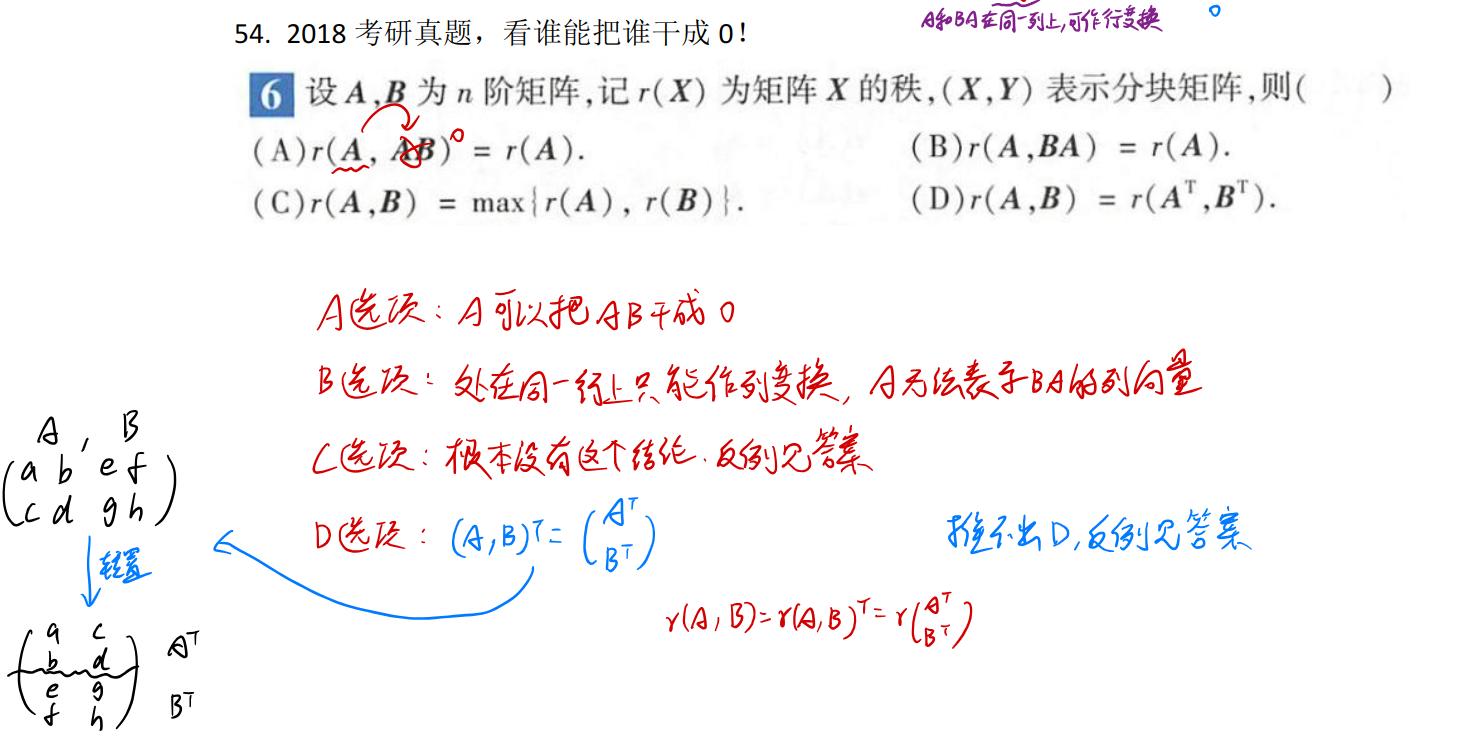 A和BA在同一列上,可作行变换
0
54. 2018 考研真题，看谁能把谁干成 0！
6 设 A,B 为 n 阶矩阵,记 r(X) 为矩阵 X 的秩,(X,Y) 表示分块矩阵,则( )
(A)r(A, AB) = r(A).
0
(B)r(A,BA) = r(A).
(C)r(A,B) = max{r(A), r(B)}.
(D)r(A,B) = r(Aᵀ,Bᵀ).
A选项：A可以把AB干成0
B选项：处在同一行上只能作列变换，A无法表示BA的列向量
C选项：根本没有这个结论.反例见答案
D选项：(A,B)ᵀ=(Aᵀ
Bᵀ)
推不出D,反例见答案
r(A,B)=r(A,B)ᵀ=r(Aᵀ
Bᵀ)
A , B
(a b e f
c d g h)
转置
(a c
b d Aᵀ
e g
f h) Bᵀ